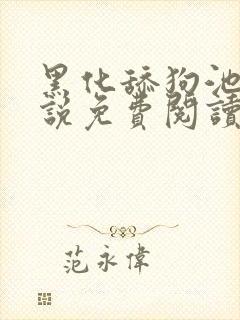 黑化舔狗池
說免費閱讀
范永偉